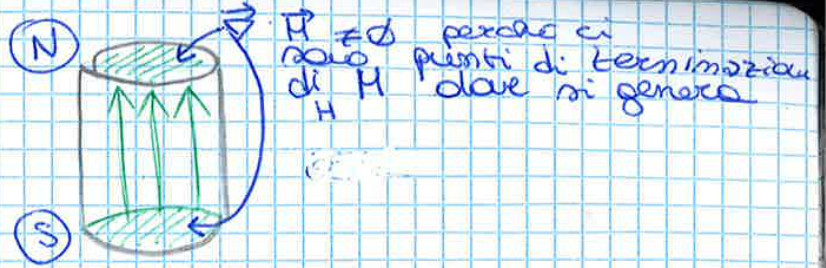 N
∇·H⃗ ≠ 0 perché ci
sono punti di terminazion
di H dove si genera
H
S